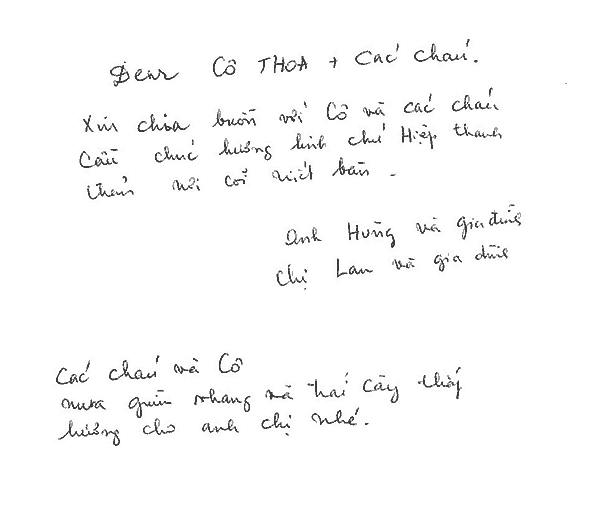 Dear Cô THOA + Các cháu.
Xin chia buồn với Cô và các cháu
Cầu chúc hương linh chú Hiệp thanh
thản nơi cõi niết bàn.
Anh Hưng và gia đình
Chị Lan và gia đình
Các cháu và Cô
mua giùm nhang và trái cây thắp
hương cho anh chị nhé.